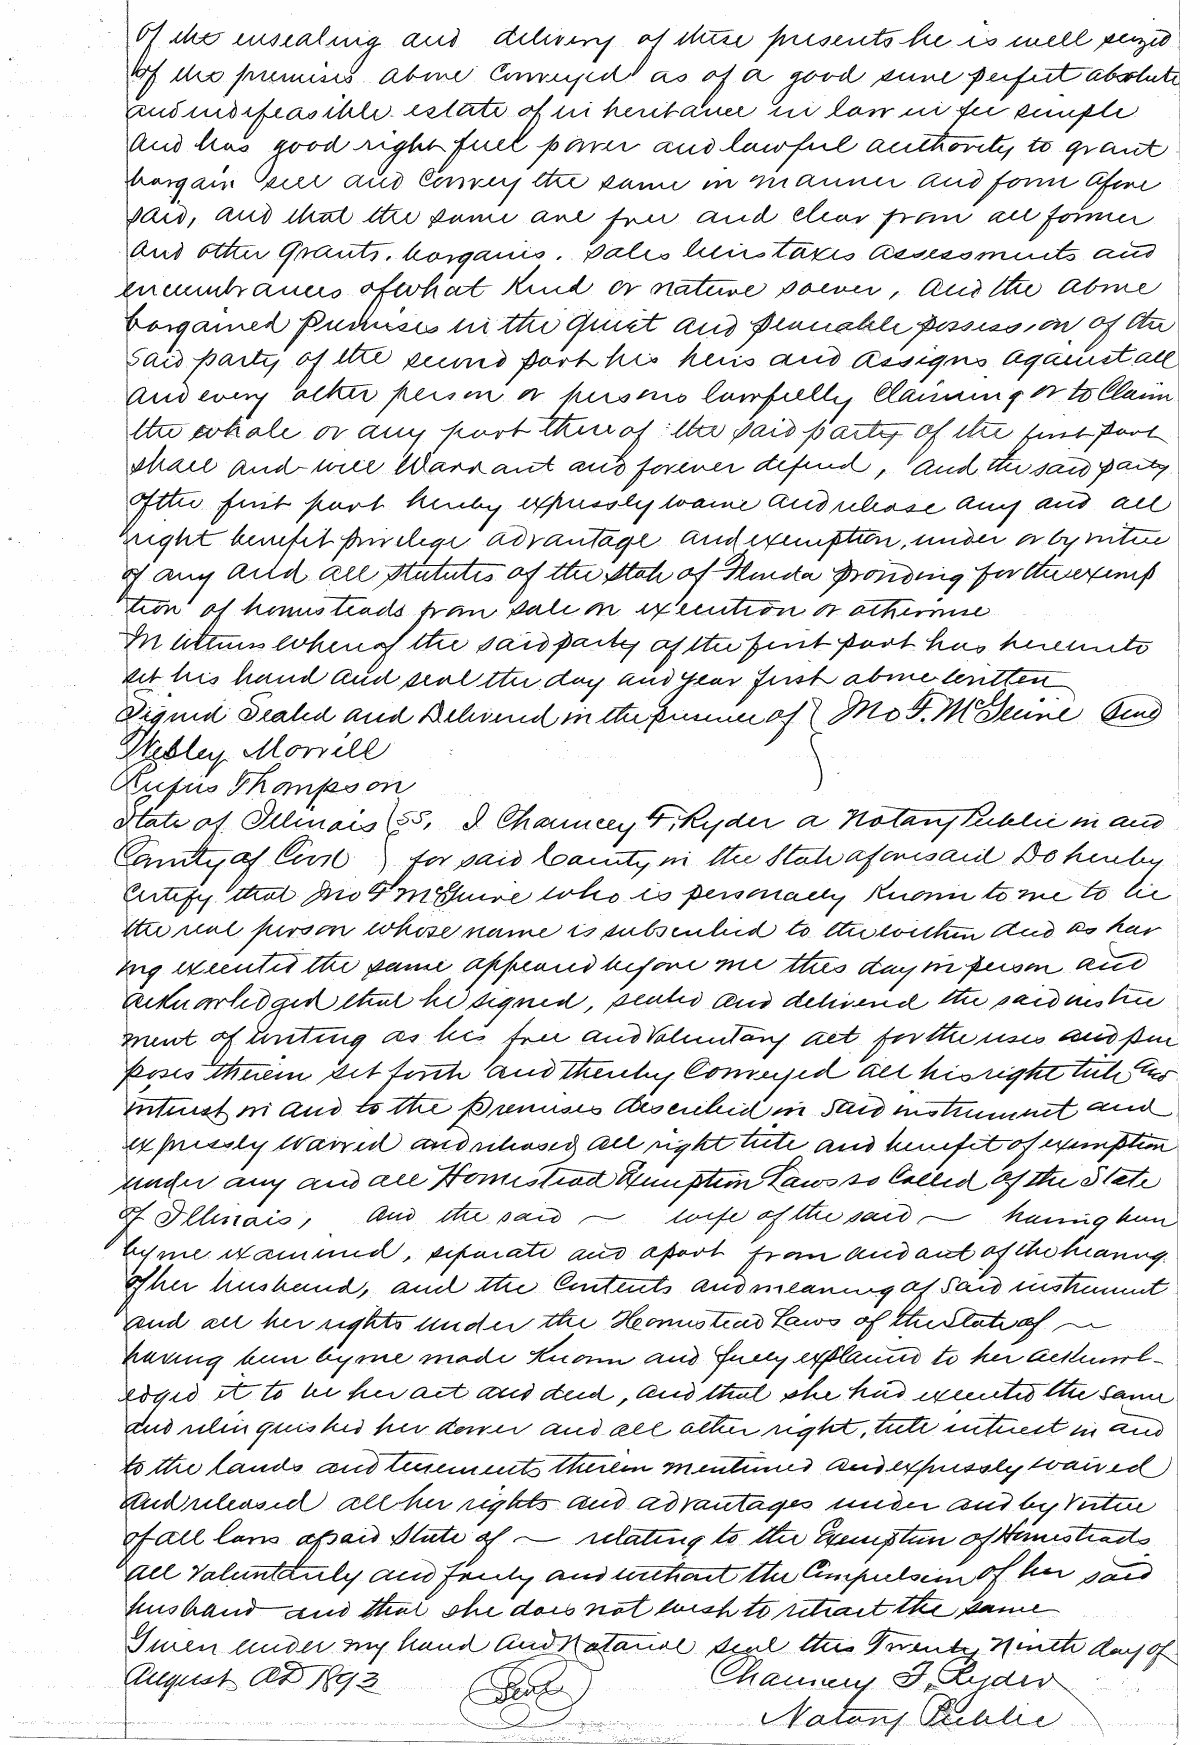 of the ensealing and delivery of these presents he is well seized
of the premises above Conveyed as of a good sure perfect absolute
and indefeasible estate of inheritance in law in fee simple
And has good right full power and lawful authority to grant
bargain sell and Convey the same in manner and form afore
said, and that the same are free and clear from all former
And other Grants. bargains. Sales liens taxes assessments and
encumbrances of what Kind or nature soever, And the above
bargained Premises in the Quiet and peaceable possession of the
said party of the second part his heirs and assigns against all
And every other person or persons lawfully Claiming or to Claim
the whole or any part thereof the said party of the first part
shall and will Warrant and forever defend, And the said party
of the first part hereby expressly waive and release any and all
right benefit privilege advantage and exemption, under or by virtue
of any and all statutes of the State of Florida providing for the exemp
tion of homesteads from sale on execution or otherwise
In Witness Whereof the said party of the first part has hereunto
set his hand and seal the day and year first above written
Signed Sealed and Delivered in the presence of } Jno F. McGuire Seal
Wesley Morrill
Rufus Thompson
State of Illinois } SS, I Chauncey F. Ryder a Notary Public in and
County of Cook } for said County in the State aforesaid Do hereby
Certify that Jno F McGuire who is personally Known to me to be
the real person whose name is subscribed to the within and as hav
ing executed the same appeared before me this day in person and
acknowledged that he signed, sealed and delivered the said instru
ment of writing as his free and Voluntary act for the uses and pur
poses therein set forth and thereby Conveyed all his right title and
interest in and to the Premises described in Said instrument and
expressly waived and released all right title and benefit of exemption
under any and all Homestead Exemption Laws so Called of the State
of Illinois, And the said — wife of the said — having been
by me examined, separate and apart from and out of the hearing
of her husband, and the Contents and meaning of Said instrument
and all her rights under the Homestead Laws of the State of —
having been by me made Known and fully explained to her acknowl-
edged it to be her act and deed, and that she had executed the same
and relinquished her dower and all other right, title interest in and
to the lands and tenements therein mentioned and expressly waived
And released all her rights and advantages under and by Virtue
of all laws of said State of — relating to the Exemption of Homesteads
all Voluntarily and freely and without the Compulsion of her said
husband and that she does not wish to retract the same
Given under my hand And Notarial seal this Twenty Ninth day of
August AD 1893 Seal Chauncey F. Ryder
Notary Public